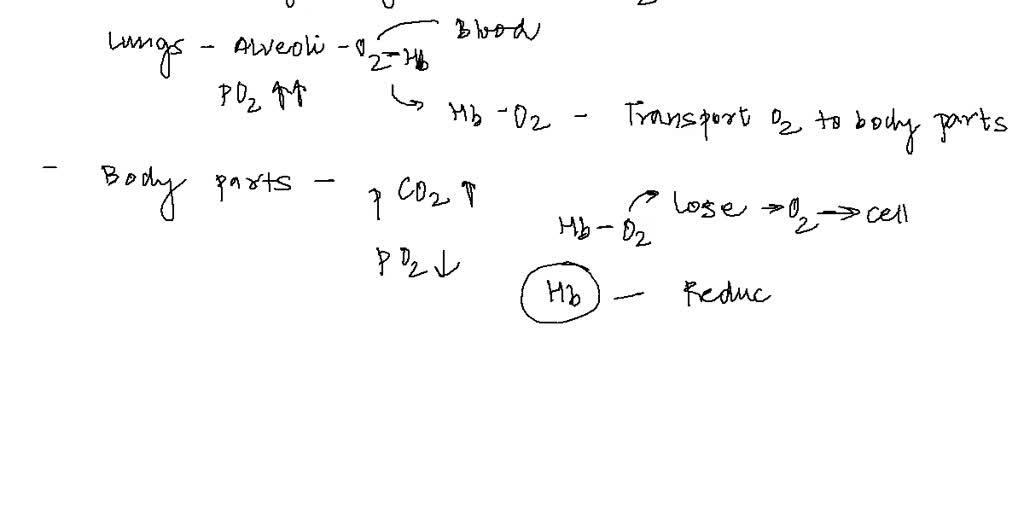 Lungs - Alveoli - O2-Hb Blood
pO2 ↑↑
↳ Hb-O2 - Transport O2 to body parts
- Body parts - pCO2 ↑
Hb-O2 ↗ Lose → O2 → cell
pO2 ↓
Hb - Reduc